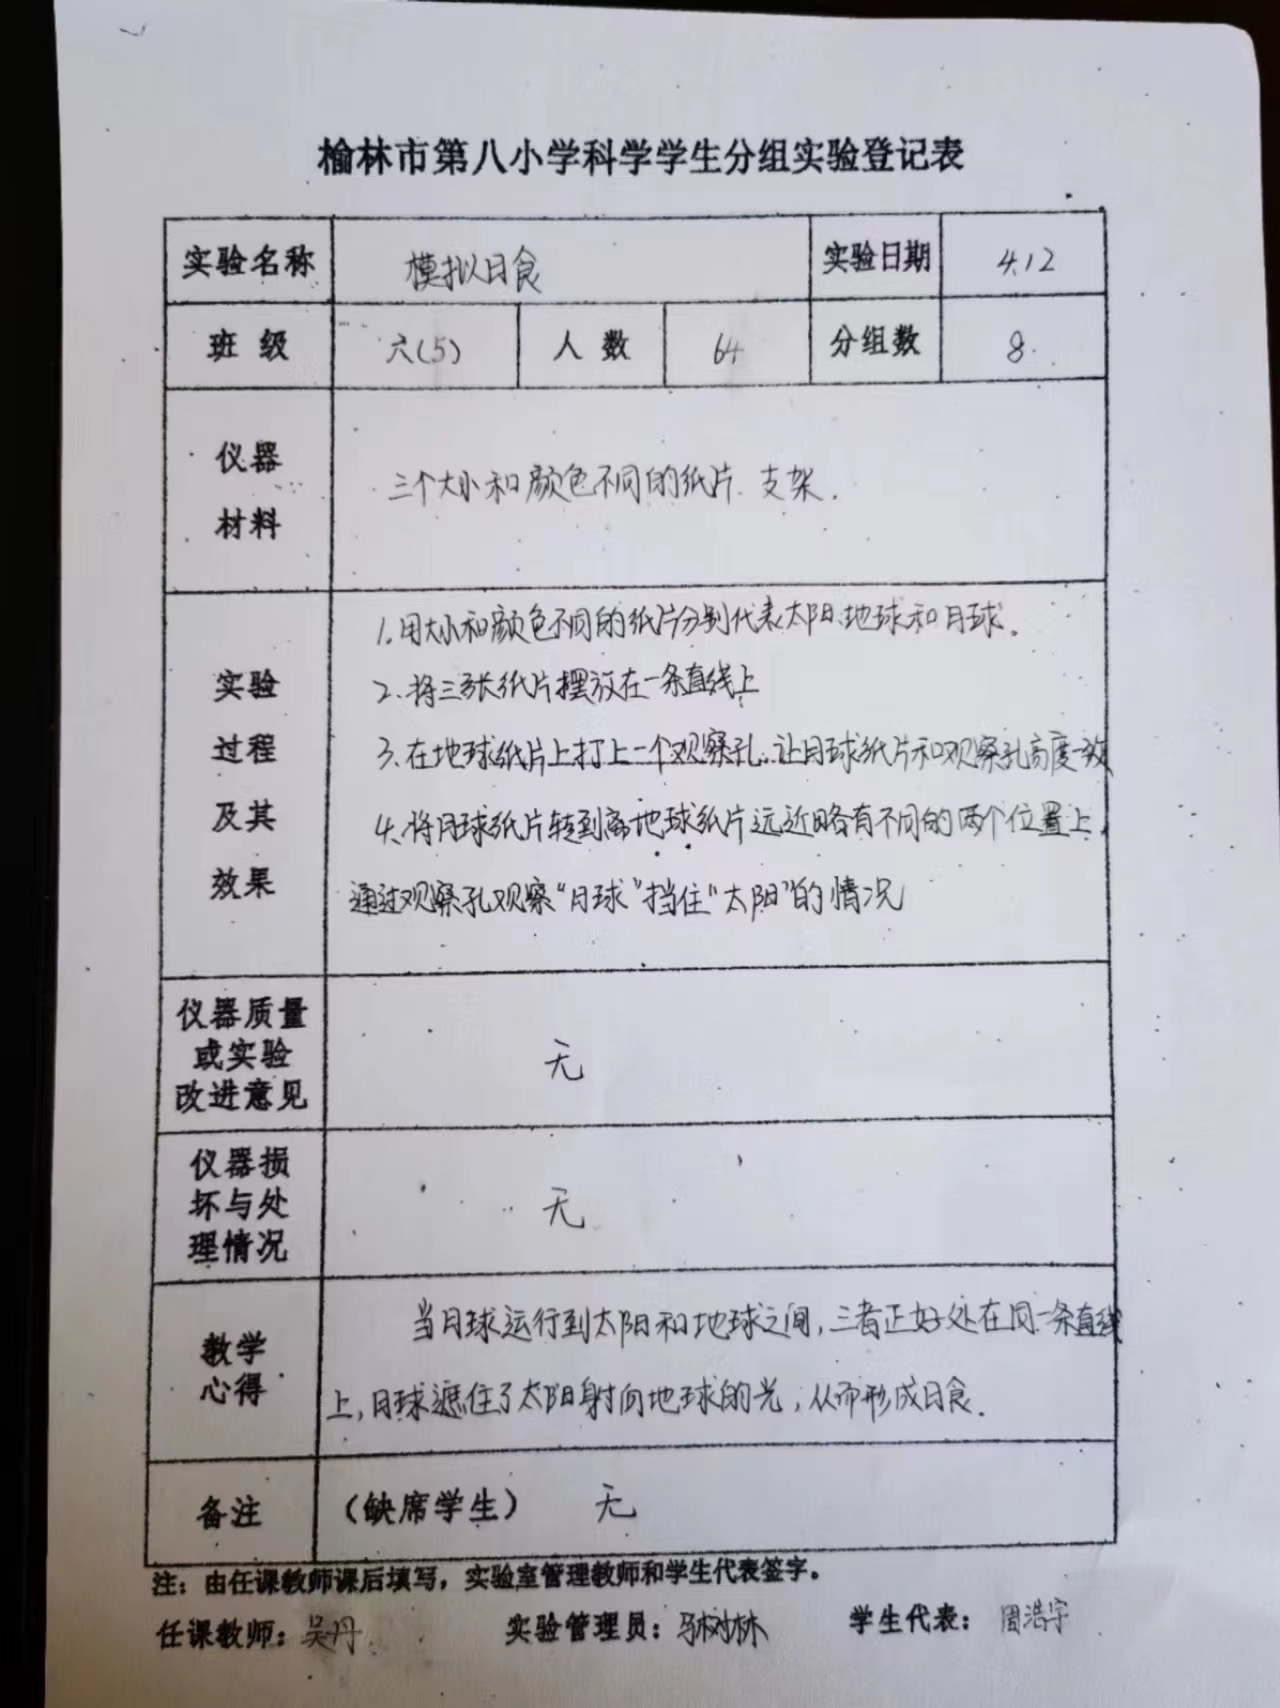 榆林市第八小学科学学生分组实验登记表
实验名称 模拟日食 实验日期 4.12
班 级 六(5) 人 数 64 分组数 8
仪器
材料
三个大小和颜色不同的纸片、支架.
实验
过程
及其
效果
1.用大小和颜色不同的纸片分别代表太阳、地球和月球.
2.将三张纸片摆放在一条直线上
3.在地球纸片上打上一个观察孔,让月球纸片和观察孔高度一致
4.将月球纸片转到离地球纸片远近略有不同的两个位置上,
通过观察孔观察“月球”挡住“太阳”的情况
仪器质量
或实验
改进意见
无
仪器损
坏与处
理情况
无
教学
心得
当月球运行到太阳和地球之间,三者正好处在同一条直线
上,月球遮住了太阳射向地球的光,从而形成日食.
备注 (缺席学生) 无
注：由任课教师课后填写，实验室管理教师和学生代表签字。
任课教师：吴丹 实验管理员：马树林 学生代表：周浩宇